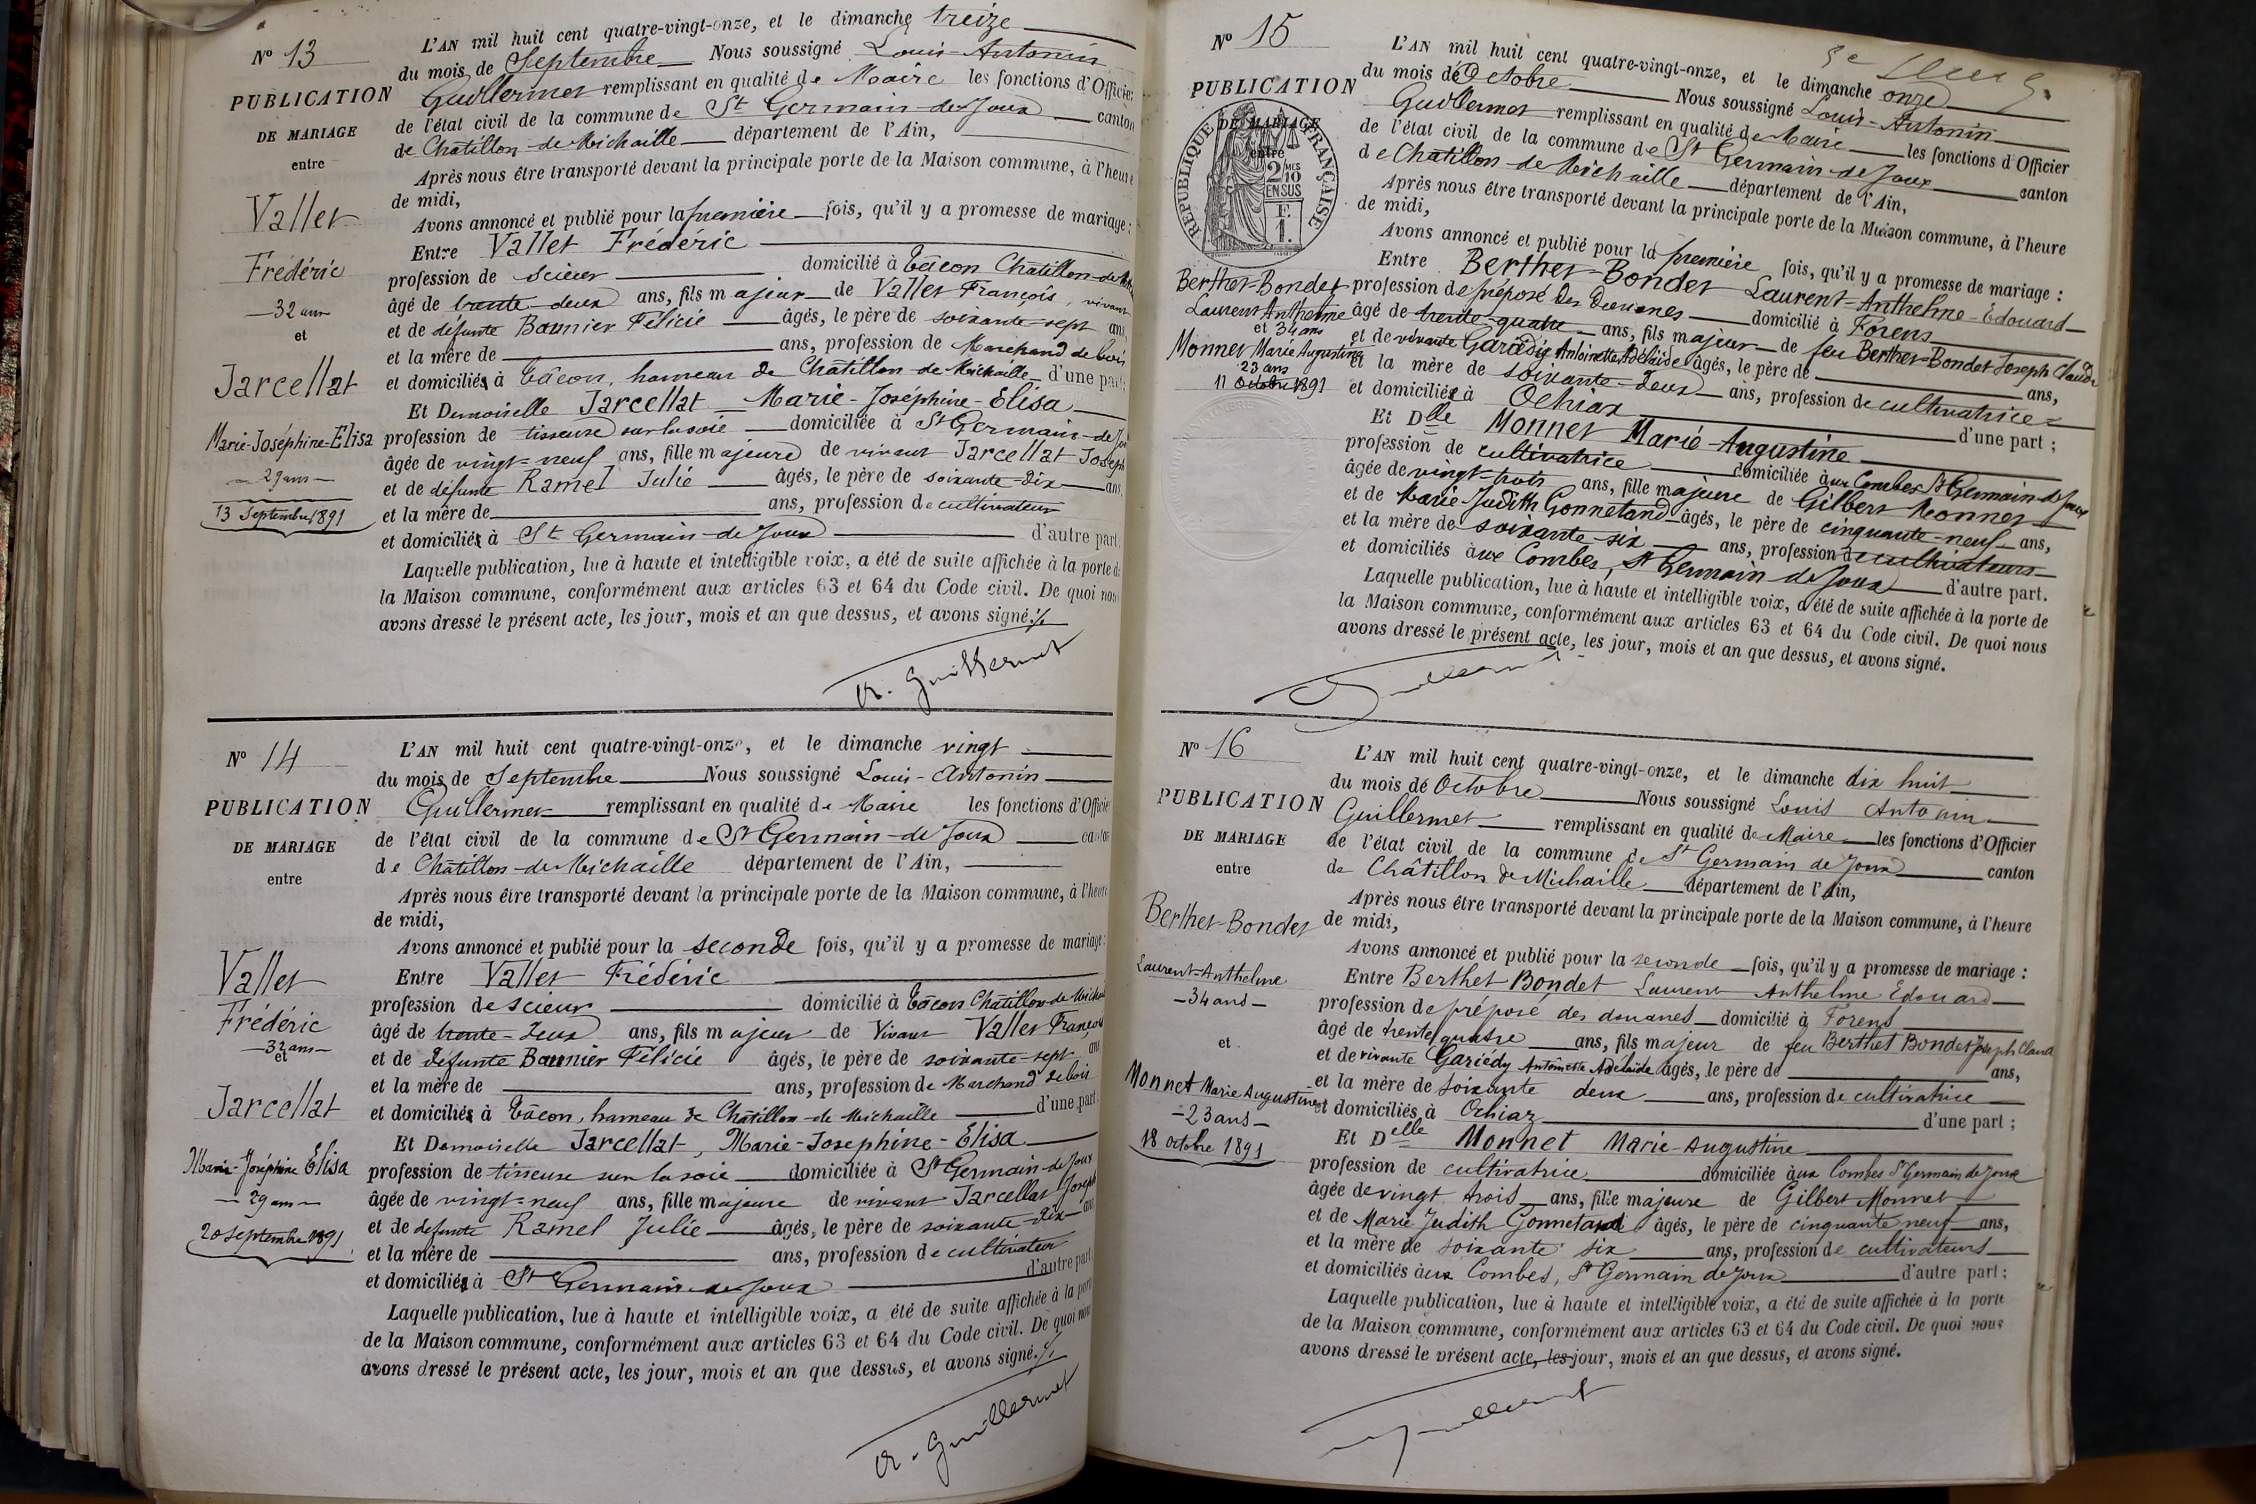 Nº 13
PUBLICATION
DE MARIAGE
entre
Vallet
Frédéric
— 32 ans
et
Jarcellat
Marie-Joséphine-Elisa
— 29 ans —
13 Septembre 1891
L'AN mil huit cent quatre-vingt-onze, et le dimanche treize
du mois de Septembre Nous soussigné Louis-Antonin
Guillermet remplissant en qualité de Maire les fonctions d'Officier
de l'état civil de la commune de St Germain-de-Joux canton
de Châtillon-de-Michaille département de l'Ain,
Après nous être transporté devant la principale porte de la Maison commune, à l'heure
de midi,
Avons annoncé et publié pour la première fois, qu'il y a promesse de mariage :
Entre Vallet Frédéric
profession de scieur domicilié à Tâcon Châtillon-de-Mich
âgé de trente-deux ans, fils majeur de Vallet François, vivant
et de défunte Baunier Félicie âgés, le père de soixante-sept ans
et la mère de ans, profession de Marchand de bois
et domiciliés à Tâcon, hameau de Châtillon-de-Michaille d'une part;
Et Demoiselle Jarcellat Marie-Joséphine-Elisa
profession de tisseuse sur la soie domiciliée à St Germain-de-Jo
âgée de vingt-neuf ans, fille majeure de vivant Jarcellat Joseph
et de défunte Ramel Julie âgés, le père de soixante-dix ans,
et la mère de ans, profession de cultivateur
et domiciliés à St Germain-de-Joux d'autre part;
Laquelle publication, lue à haute et intelligible voix, a été de suite affichée à la porte de
la Maison commune, conformément aux articles 63 et 64 du Code civil. De quoi nous
avons dressé le présent acte, les jour, mois et an que dessus, et avons signé ./.
A. Guillermet
Nº 14
PUBLICATION
DE MARIAGE
entre
Vallet
Frédéric
— 32 ans —
et
Jarcellat
Marie-Joséphine Elisa
— 29 ans —
20 Septembre 1891
L'AN mil huit cent quatre-vingt-onze, et le dimanche vingt
du mois de Septembre Nous soussigné Louis-Antonin
Guillermet remplissant en qualité de Maire les fonctions d'Officier
de l'état civil de la commune de St Germain-de-Joux canton
de Châtillon-de-Michaille département de l'Ain,
Après nous être transporté devant la principale porte de la Maison commune, à l'heure
de midi,
Avons annoncé et publié pour la seconde fois, qu'il y a promesse de mariage :
Entre Vallet Frédéric
profession de scieur domicilié à Tâcon Châtillon-de-Michai
âgé de trente-deux ans, fils majeur de Vivant Vallet François
et de défunte Baunier Félicie âgés, le père de soixante-sept ans
et la mère de ans, profession de Marchand de bois
et domiciliés à Tâcon, hameau de Châtillon-de-Michaille d'une part
Et Demoiselle Jarcellat, Marie-Josephine-Elisa
profession de tisseuse sur la soie domiciliée à St Germain-de-Joux
âgée de vingt-neuf ans, fille majeure de vivant Jarcellat Joseph
et de défunte Ramel Julie âgés, le père de soixante-dix ans
et la mère de ans, profession de cultivateur
et domiciliés à St Germain-de-Joux d'autre part;
Laquelle publication, lue à haute et intelligible voix, a été de suite affichée à la porte
de la Maison commune, conformément aux articles 63 et 64 du Code civil. De quoi nous
avons dressé le présent acte, les jour, mois et an que dessus, et avons signé ./.
A. Guillermet
Nº 15
PUBLICATION
DE MARIAGE
entre
RÉPUBLIQUE FRANÇAISE
2/10
EN SUS
F.
1.
Berthet-Bondet
Laurent Anthelme
et 34 ans
Monnet Marie Augustine
23 ans
11 Octobre 1891
L'AN mil huit cent quatre-vingt-onze, et le dimanche onze
du mois de Octobre Nous soussigné Louis-Antonin
Guillermet remplissant en qualité de Maire les fonctions d'Officier
de l'état civil de la commune de St Germain-de-Joux canton
de Châtillon-de-Michaille département de l'Ain,
Après nous être transporté devant la principale porte de la Maison commune, à l'heure
de midi,
Avons annoncé et publié pour la première fois, qu'il y a promesse de mariage :
Entre Berthet-Bondet Laurent-Anthelme-Edouard
profession de préposé des Douanes domicilié à Forens
âgé de trente-quatre ans, fils majeur de feu Berthet-Bondet Joseph Claude
et de vivante Gariédy Antoinette Adélaïde âgés, le père de ans,
et la mère de soixante-deux ans, profession de cultivatrice
et domiciliés à Ochiaz d'une part ;
Et Delle Monnet Marie-Augustine
profession de cultivatrice domiciliée aux Combes St Germain-de-Joux
âgée de vingt-trois ans, fille majeure de Gilbert Monnet
et de Marie Judith Gonnetand âgés, le père de cinquante-neuf ans,
et la mère de soixante-six ans, profession de cultivateurs
et domiciliés aux Combes, St Germain-de-Joux d'autre part.
Laquelle publication, lue à haute et intelligible voix, a été de suite affichée à la porte de
la Maison commune, conformément aux articles 63 et 64 du Code civil. De quoi nous
avons dressé le présent acte, les jour, mois et an que dessus, et avons signé.
Guillermet
Nº 16
PUBLICATION
DE MARIAGE
entre
Berthet-Bondet
Laurent-Anthelme
— 34 ans —
et
Monnet Marie Augustine
— 23 ans —
18 octobre 1891
L'AN mil huit cent quatre-vingt-onze, et le dimanche dix huit
du mois de Octobre Nous soussigné Louis Antonin
Guillermet remplissant en qualité de Maire les fonctions d'Officier
de l'état civil de la commune de St Germain de Joux canton
de Châtillon de Michaille département de l'Ain,
Après nous être transporté devant la principale porte de la Maison commune, à l'heure
de midi,
Avons annoncé et publié pour la seconde fois, qu'il y a promesse de mariage :
Entre Berthet Bondet Laurent Anthelme Edouard
profession de préposé des douanes domicilié à Forens
âgé de trente quatre ans, fils majeur de feu Berthet Bondet Joseph Claud
et de vivante Gariédy Antoinette Adélaide âgés, le père de ans,
et la mère de soixante deux ans, profession de cultivatrice
et domiciliés à Ochiaz d'une part ;
Et Delle Monnet Marie-Augustine
profession de cultivatrice domiciliée aux Combes St Germain de Joux
âgée de vingt trois ans, fille majeure de Gilbert Monnet
et de Marie Judith Gonnetand âgés, le père de cinquante neuf ans,
et la mère de soixante six ans, profession de cultivateurs
et domiciliés aux Combes, St Germain de Joux d'autre part;
Laquelle publication, lue à haute et intelligible voix, a été de suite affichée à la porte
de la Maison commune, conformément aux articles 63 et 64 du Code civil. De quoi nous
avons dressé le présent acte, les jour, mois et an que dessus, et avons signé.
Guillermet